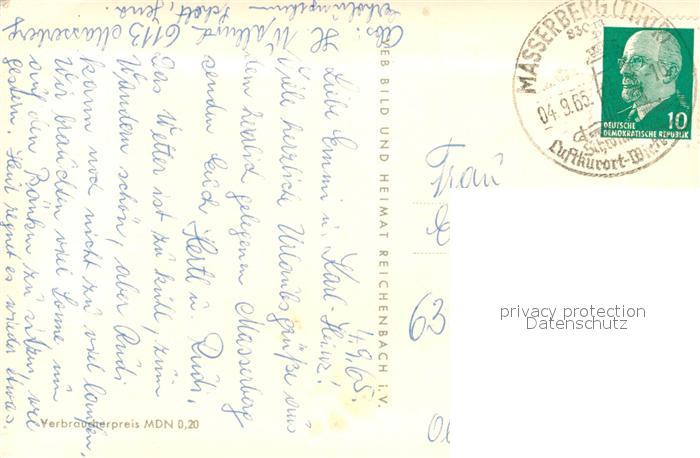 Abs: H. Wallendt 6113 Masserberg
Erholungsheim Schott, Jena.
4.9.65.
Liebe Emmi u. Karl-Heinz!
Viele herzliche Urlaubsgrüße aus
dem herrlich gelegenen Masserberg
senden Euch Hertl u. Rudi.
Das Wetter ist zu kühl, zum
Wandern schön, aber Rudi
kann noch nicht zu viel laufen,
Wir brauchten viel Sonne, um
auf den Bänken zu sitzen, wie
gestern. Heut regnet es wieder etwas.
VEB BILD UND HEIMAT REICHENBACH I. V.
Verbraucherpreis MDN 0,20
MASSERBERG (THÜR
04.9.65.
Luftkurort
10
DEUTSCHE
DEMOKRATISCHE REPUBLIK
Frau
63
privacy protection
Datenschutz